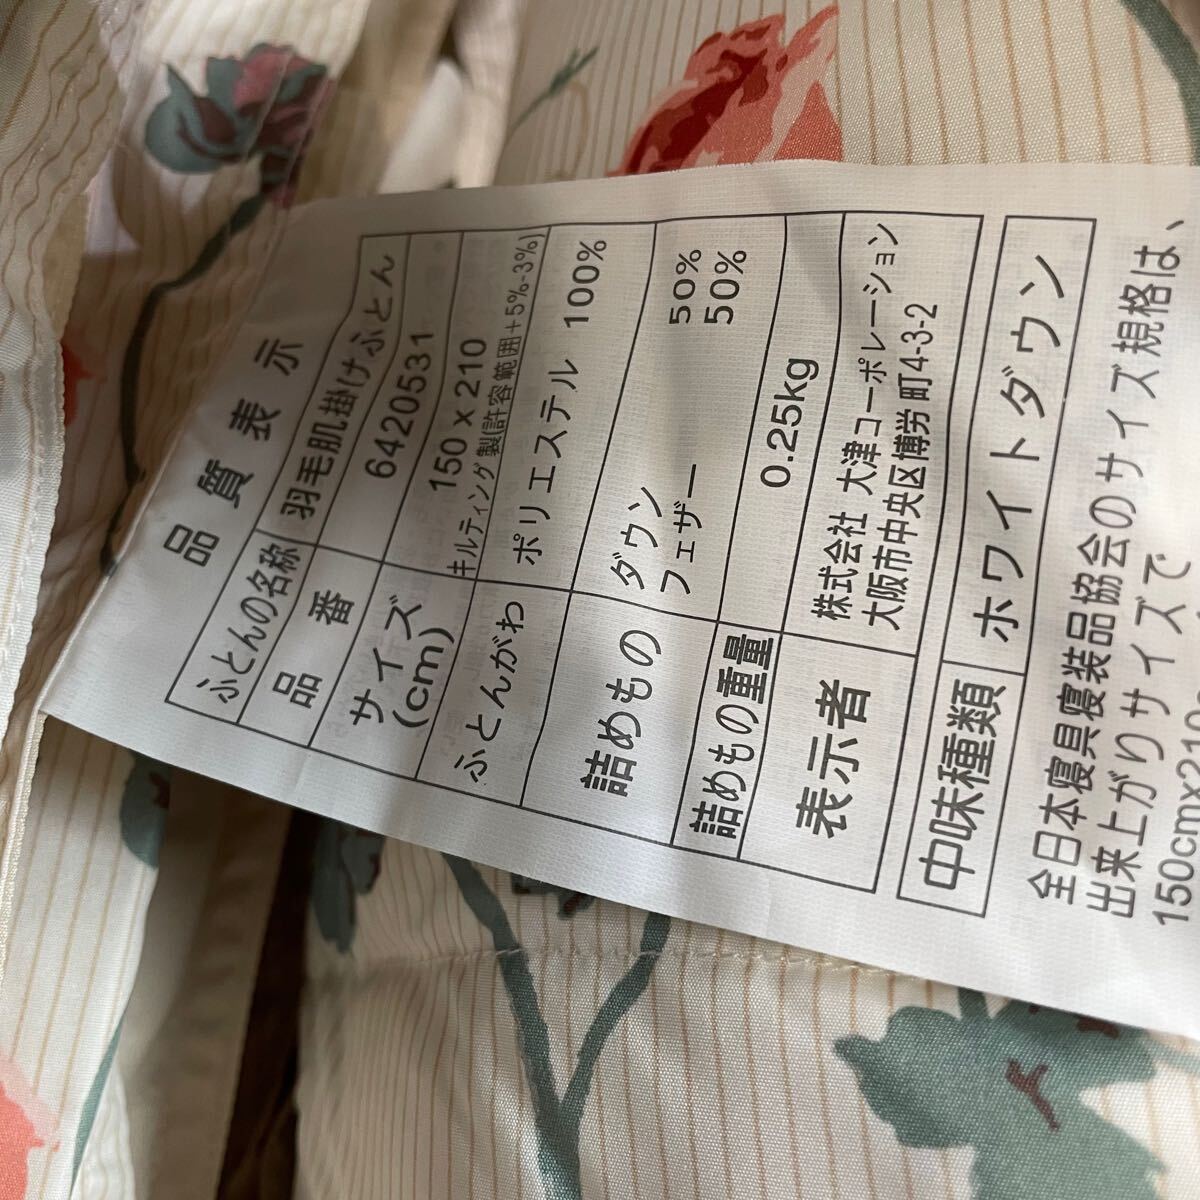 品質表示
ふとんの名称 羽毛肌掛けふとん
品番 6420531
サイズ(cm) 150 x 210
キルティング製(許容範囲+5%-3%)
ふとんがわ ポリエステル 100%
詰めもの ダウン 50%
フェザー 50%
詰めもの重量 0.25kg
表示者 株式会社 大津コーポレーション
大阪市中央区博労町4-3-2
中味種類 ホワイトダウン
全日本寝具寝装品協会のサイズ規格は、
出来上がりサイズで
150cmx210